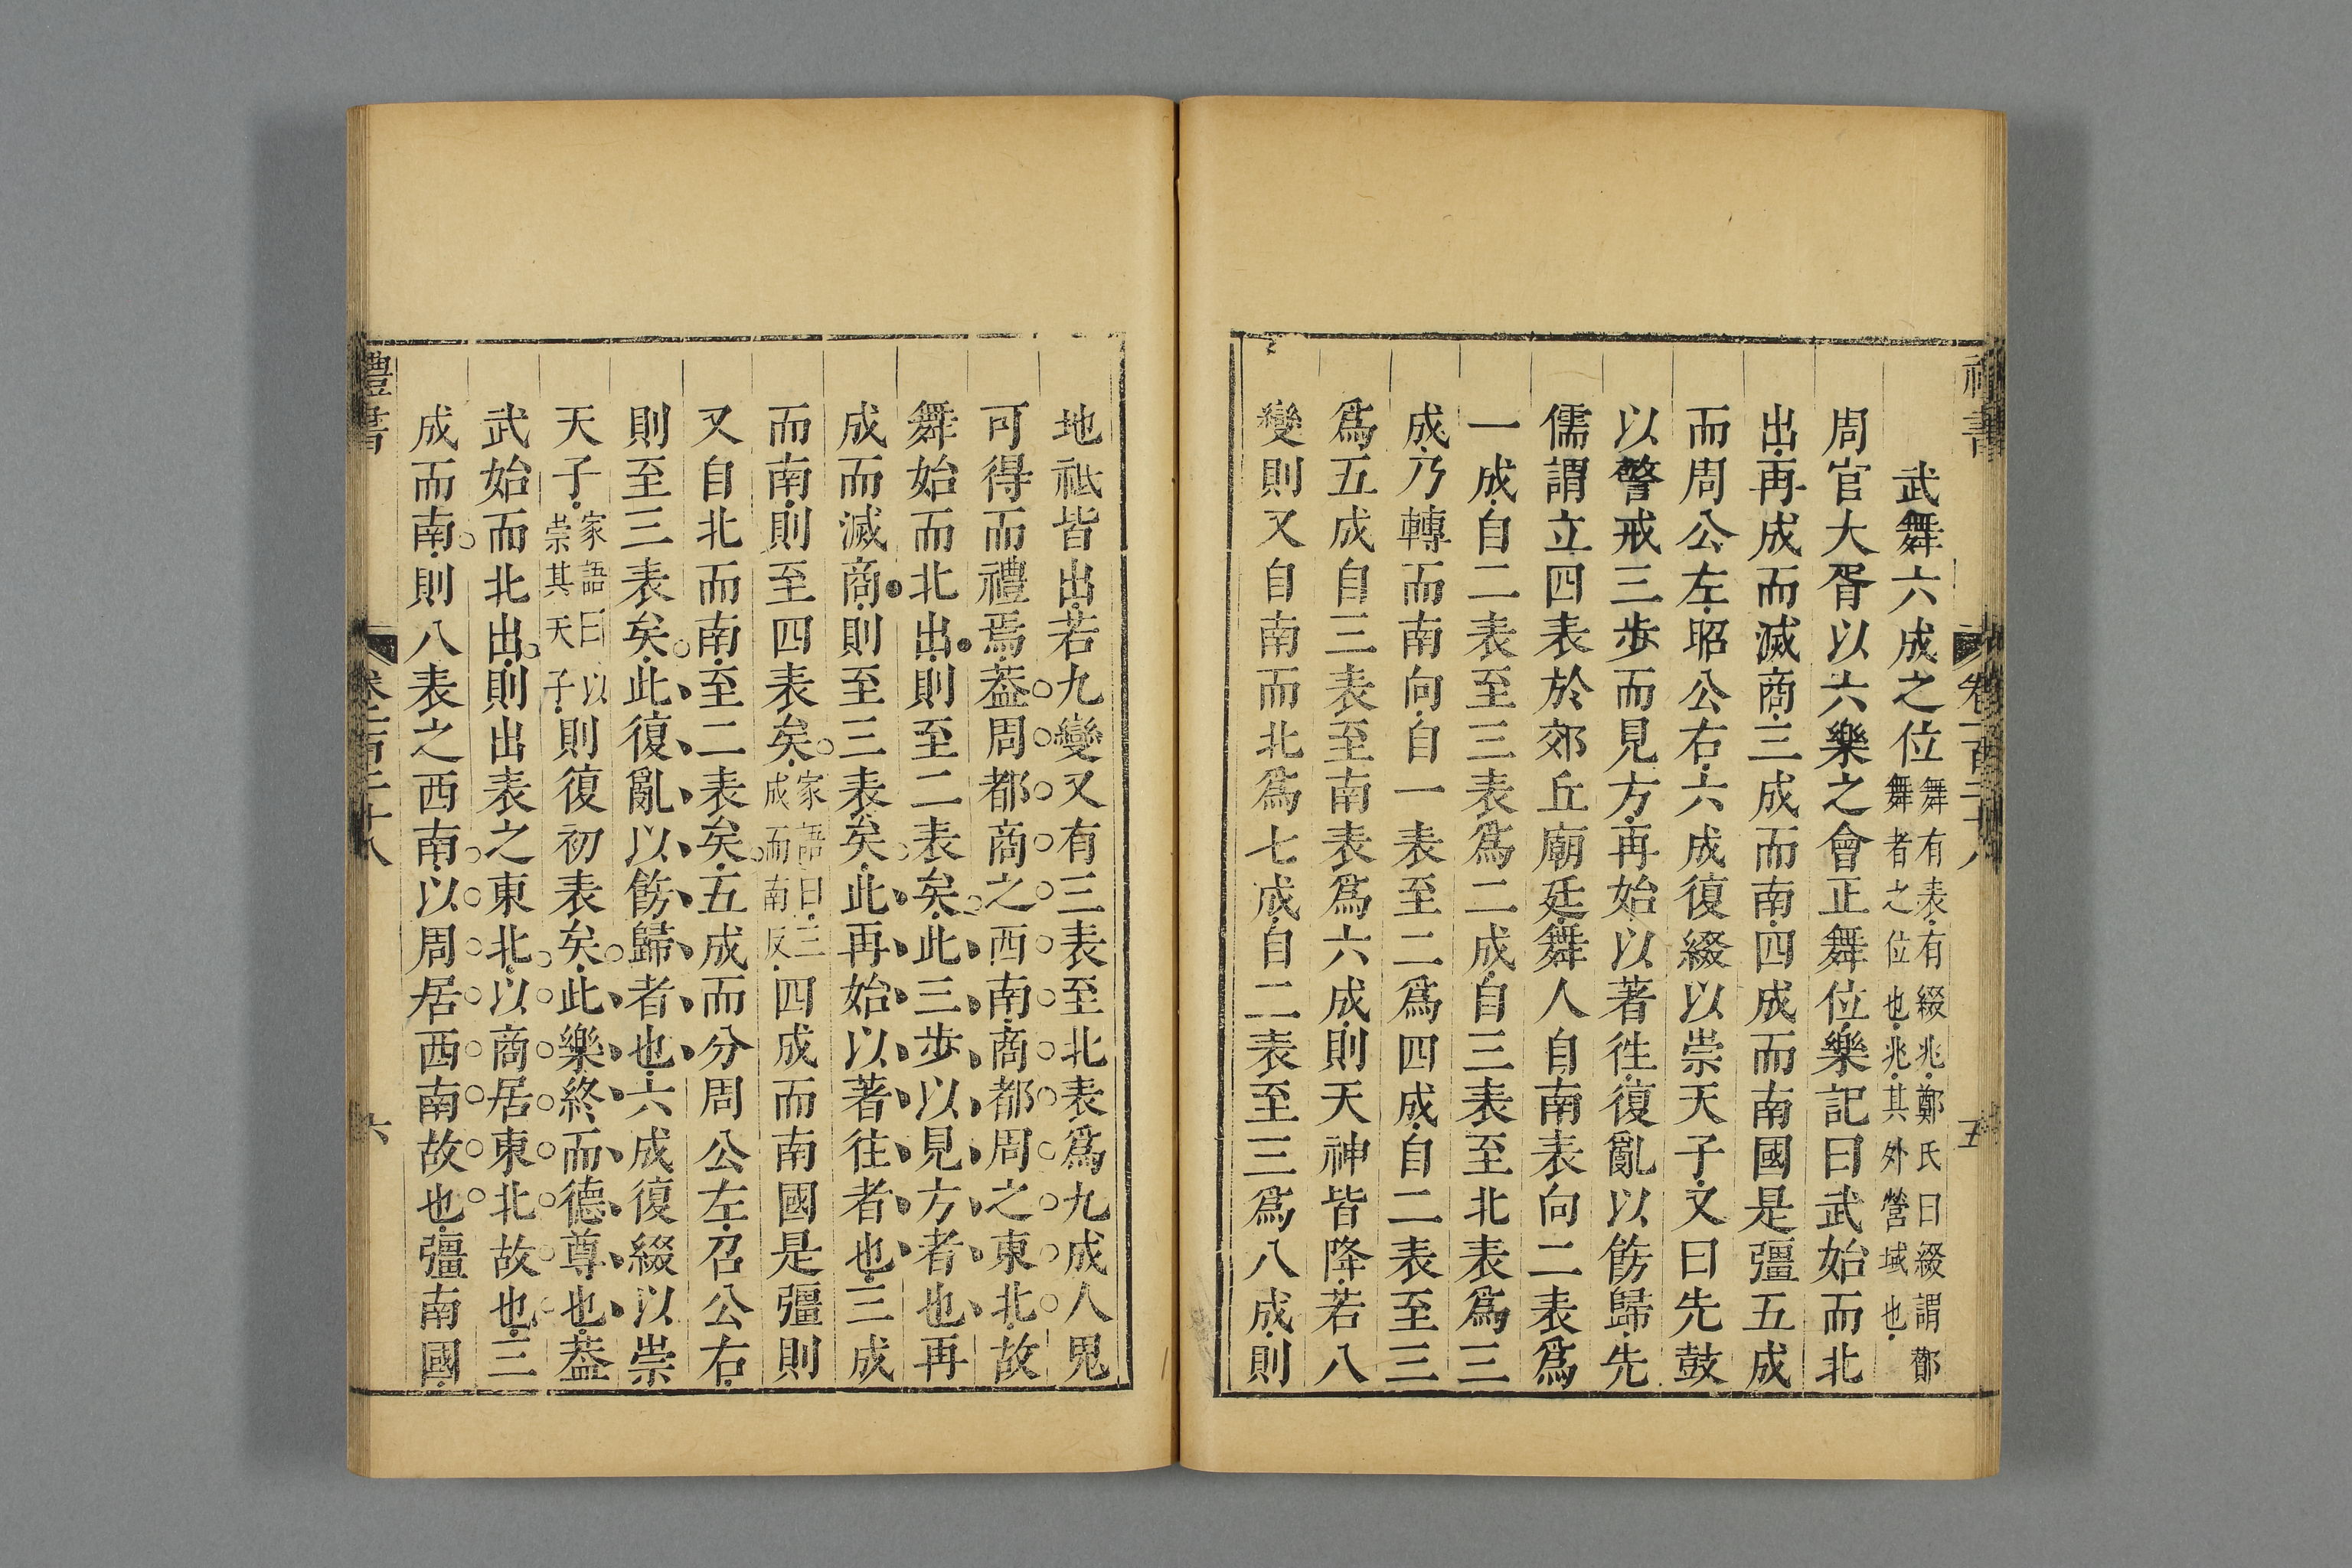 武舞六成之位舞有表有綴兆鄭氏曰綴謂酇
舞者之位也兆其外營域也
周官大胥以六樂之會正舞位樂記曰武始而北
出再成而滅商三成而南四成而南國是彊五成
而周公左昭公右六成復綴以崇天子又曰先鼓
以警戒三步而見方再始以著徃復亂以飭歸先
儒謂立四表於郊丘廟廷舞人自南表向二表爲
一成自二表至三表爲二成自三表至北表爲三
成乃轉而南向自一表至二爲四成自二表至三
爲五成自三表至南表爲六成則天神皆降若八
變則又自南而北爲七成自二表至三爲八成則
地祗皆出若九變又有三表至北表爲九成人鬼
可得而禮焉葢周都商之西南商都周之東北故
舞始而北出則至二表矣此三步以見方者也再
成而滅商則至三表矣此再始以著往者也三成
而南則至四表矣家語曰三
成而南反四成而南國是彊則
又自北而南至二表矣五成而分周公左召公右
則至三表矣此復亂以飭歸者也六成復綴以崇
天子家語曰以
崇其天子則復初表矣此樂終而德尊也葢
武始而北出則出表之東北以商居東北故也三
成而南則八表之西南以周居西南故也彊南國
禮書 六